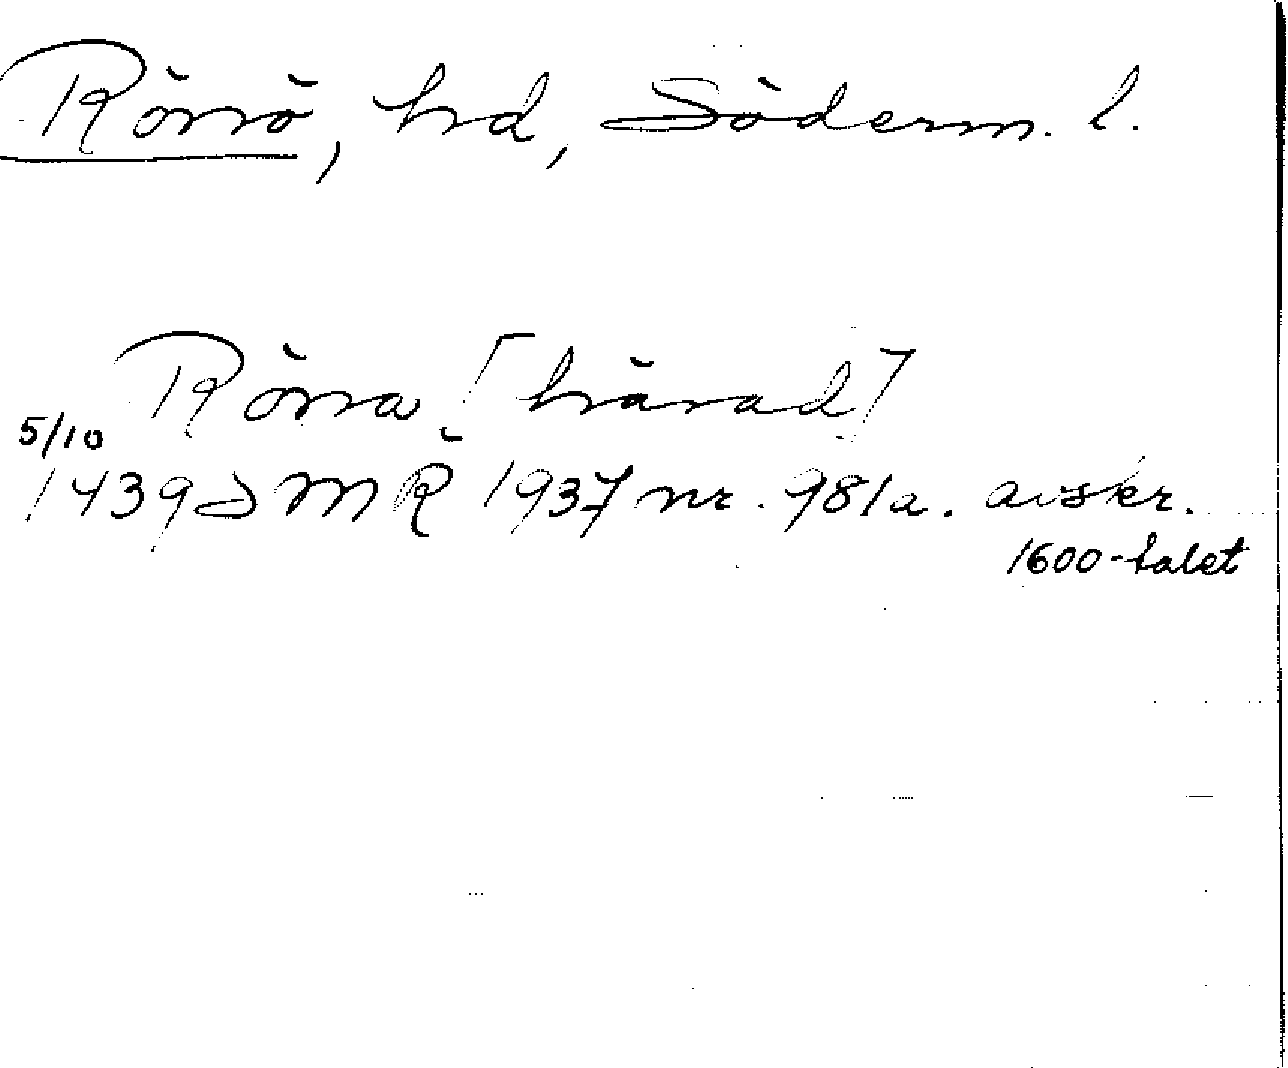 Rönö, hd, Söderm. l.
Röna [härad]
5/10
1439 S M R 1937 nr. 981a. avskr.
1600-talet